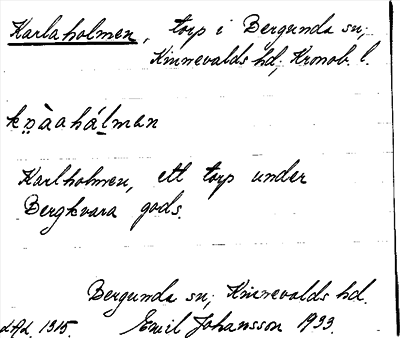 Karlaholmen, torp i Bergunda sn;
Kinnevalds hd; Kronob. l.
Karlholmen, ett torp under
Bergkvara gods.
Bergunda sn; Kinnevalds hd.
1315. Emil Johansson 1933.